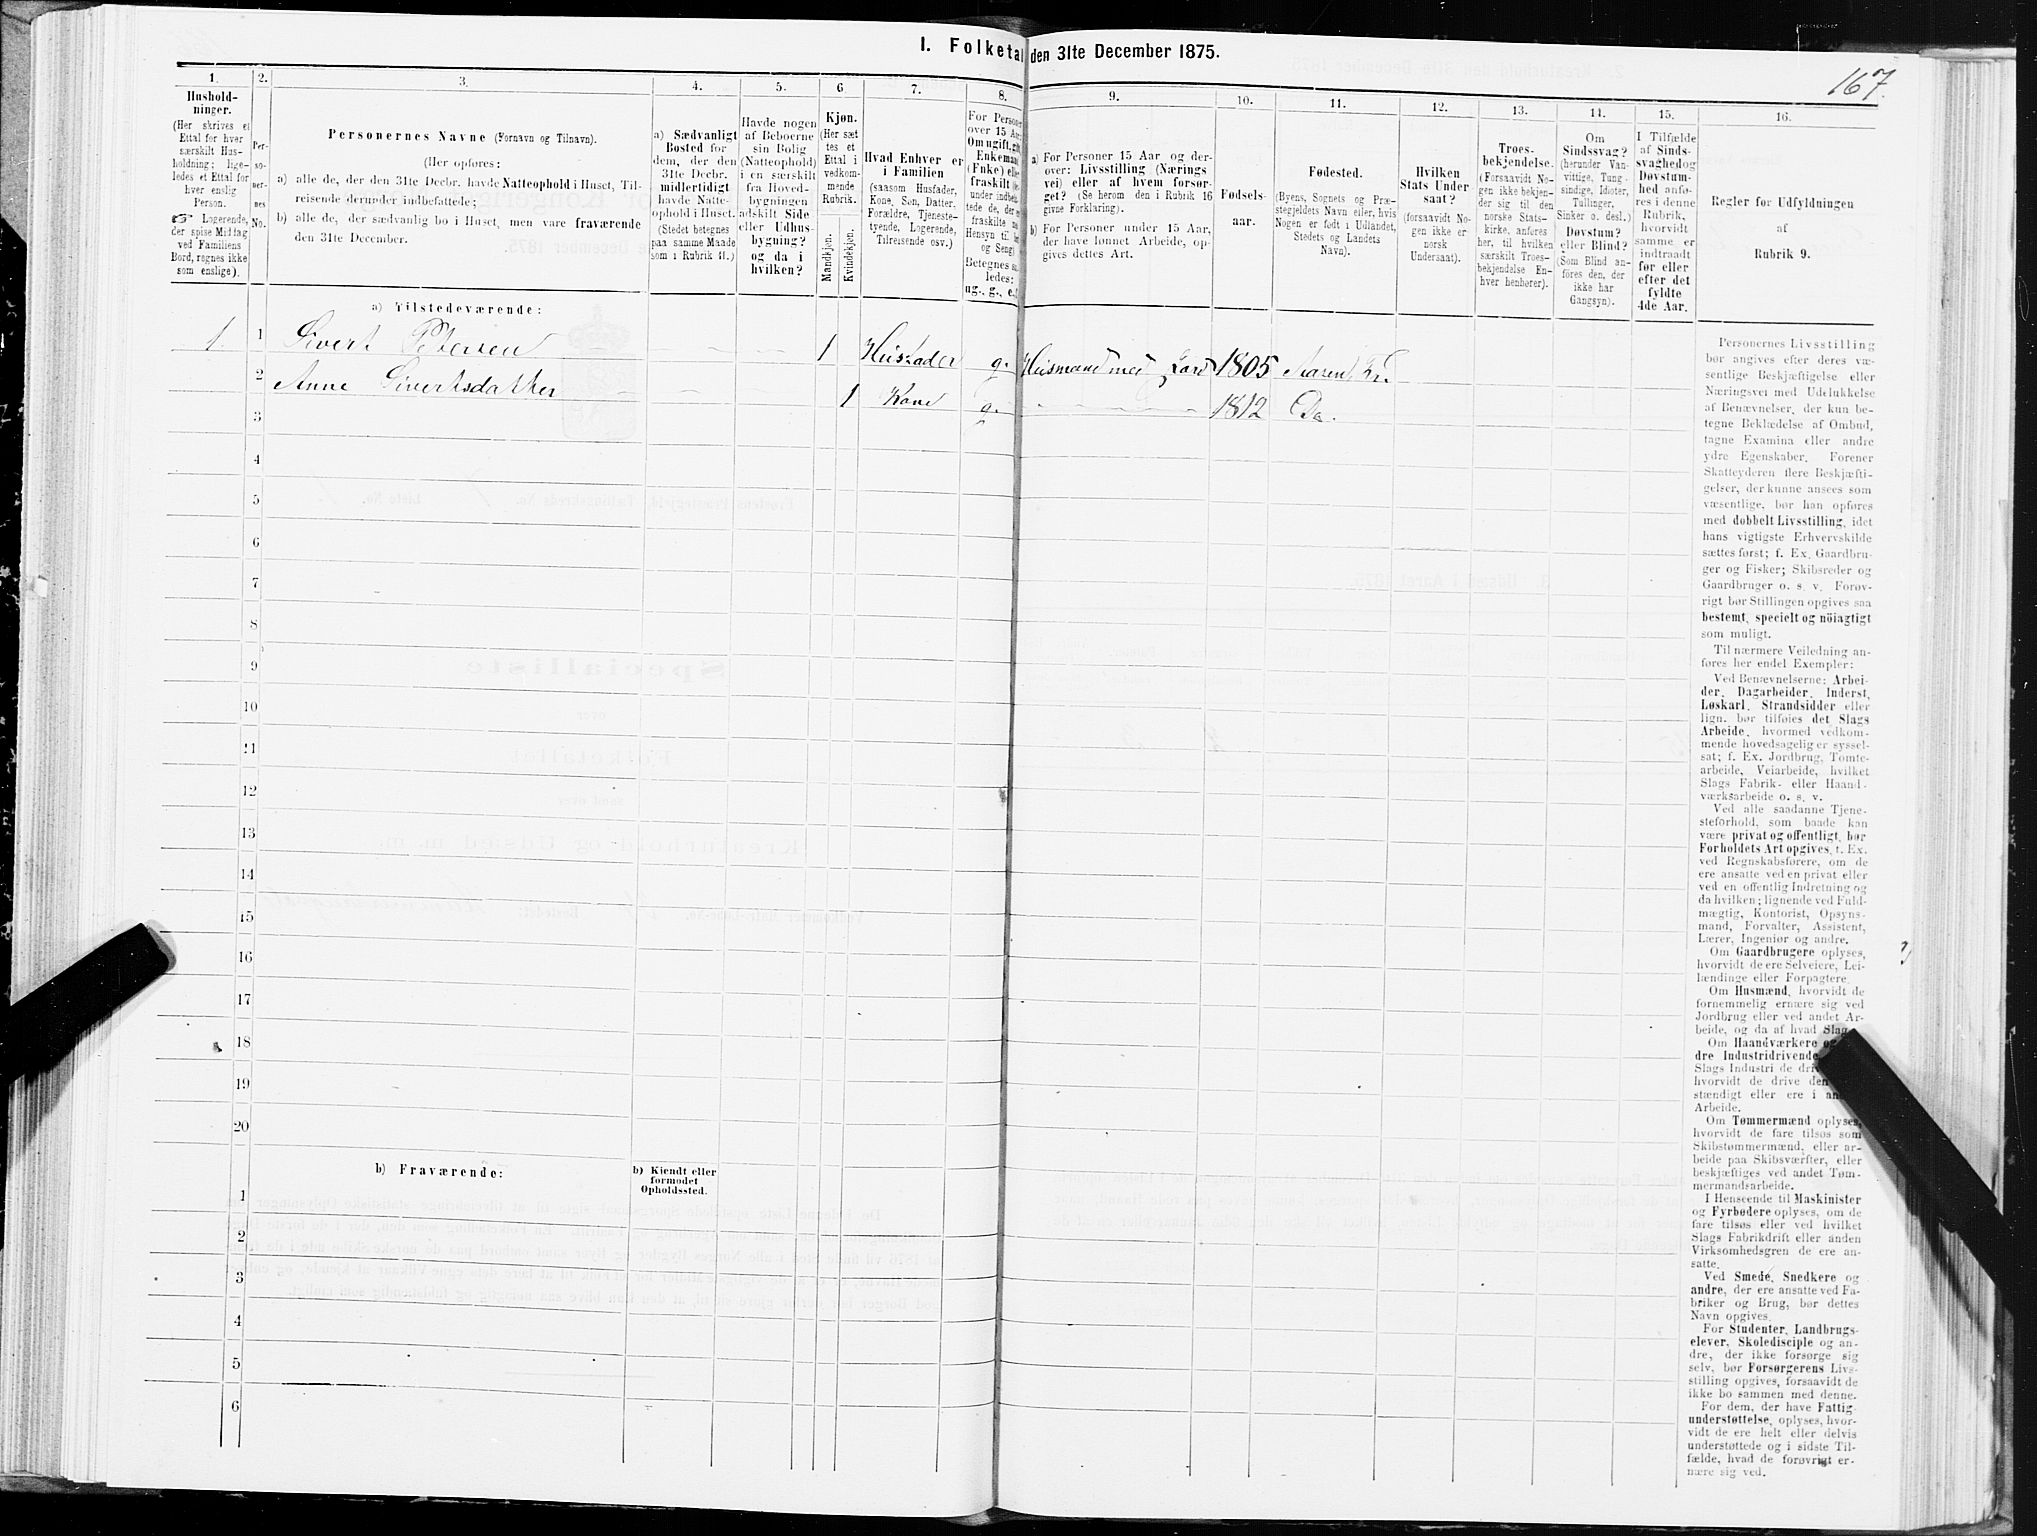 I. Folketal den 31te December 1875.
167.
1.
Hushold-
ninger.
(Her skrives et
Ettal for hver
særskilt Hus-
holdning; lige-
ledes et Ettal for
hver enslig
Person.
☞ Logerende,
der spise Middag
ved Familiens
Bord, regnes ikke
som enslige).
2.
Per-
so-
ner-
nes
No.
3.
Personernes Navne (Fornavn og Tilnavn).
(Her opføres:
a) alle de, der den 31te Decbr. havde Natteophold i Huset, Til-
reisende derunder indbefattede;
b) alle de, der sædvanlig bo i Huset, men vare fraværende
den 31te December.
4.
a) Sædvanligt
Bosted for
dem, der den
31te Decbr.
midlertidigt
havde Natte-
ophold i Huset.
(Stedet betegnes
paa samme Maade
som i Rubrik 11.)
5.
Havde nogen
af Beboerne
sin Bolig
(Natteophold)
i en særskilt
fra Hoved-
bygningen
adskilt Side
eller Udhus-
bygning?
og da i
hvilken?
6
Kjøn.
(Her sæt
tes et
Ettal i
vedkom-
mende
Rubrik.
Mandkjøn.
Kvindekjøn.
7.
Hvad Enhver er
i Familien
(saasom Husfader,
Kone, Søn, Datter,
Forældre, Tjeneste-
tyende, Logerende,
Tilreisende osv.)
8.
For Personer
over 15 Aar:
Om ugift, gift,
Enkemand
(Enke) eller
fraskilt
Betegnes saa
ledes:
ug., g., e.,
9.
a) For Personer 15 Aar og der-
over: Livsstilling (Nærings
vei) eller af hvem forsør-
get? (Se herom den i Rubrik 16
givne Forklaring).
b) For Personer under 15 Aar,
der have lønnet Arbeide, op-
gives dettes Art.
10.
Fødsels-
aar.
11.
Fødested.
(Byens, Sognets og Præ-
stegjeldets Navn eller, hvis
Nogen er født i Udlandet,
Stedets og Landets
Navn).
12.
Hvilken
Stats Under
saat?
(forsaavidt No-
gen ikke er
norsk
Undersaat).
13.
Troes-
bekjendelse.
(Forsaavidt No-
gen ikke bekjen-
der sig til den
norske Stats-
kirke, anføres
her, til hvilken
særskilt Troes-
bekjendelse En-
hver henhører).
14.
Om
Sindssvag?
(herunder Van-
vittige, Tung-
sindige, Idioter,
Tullinger,
Sinker o. desl.)
Døvstum?
eller Blind?
(Som Blind an-
føres den, der
ikke har
Gangsyn).
15.
I Tilfælde
af Sinds-
svaghed og
Døvstum-
hed anfø-
res i denne
Rubrik,
hvorvidt
samme er
indtraadt
før eller
efter det
fyldte
4de Aar.
16.
Regler for Udfyldningen
af
Rubrik 9.
a) Tilstedeværende:
1 1 Sivert Petersen 1 Husfader g. Husmand med Jord 1805 Aaren Kr.
2 Anne Sivertsdatter 1 Kone g. 1812 Do.
3
4
5
6
7
8
9
10
11
12
13
14
15
16
17
18
19
20
b) Fraværende:
b) Kjendt eller
formodet
Opholdssted.
1
2
3
4
5
6
Personernes Livsstilling
bør angives efter deres væ-
sentlige Beskjæftigelse eller
Næringsvei med Udelukkelse
af Benævnelser, der kun be-
tegne Beklædelse af Ombud,
tagne Examina eller andre
ydre Egenskaber. Forener
Skatteyderen flere Beskjæfti-
gelser, der kunne ansees som
væsentlige, bør han opføres
med dobbelt Livsstilling, idet
hans vigtigste Erhvervskilde
sættes først; f. Ex. Gaardbru-
ger og Fisker; Skibsreder og
Gaardbruger o. s. v. Forøv-
rigt bør Stillingen opgives saa
bestemt, specielt og nöiagtigt
som muligt.
Til nærmere Veiledning an-
føres her endel Exempler:
Ved Benævnelserne: Arbei-
der, Dagarbeider, Inderst,
Løskarl, Strandsidder eller
lign. bør tilføies det Slags
Arbeide, hvormed vedkom-
mende hovedsagelig er syssel-
sat; f. Ex. Jordbrug, Tomte-
arbeide, Veiarbeide, hvilket
Slags Fabrik- eller Haand-
værksarbeide o. s. v.
Ved alle saadanne Tjene-
steforhold, som baade kan
være privat og offentligt, bør
Forholdets Art opgives, f. Ex.
ved Regnskabsførere, om de
ere ansatte ved en privat eller
ved en offentlig Indretning og
da hvilken; lignende ved Fuld-
mægtig, Kontorist, Opsyns-
mand, Forvalter, Assistent,
Lærer, Ingeniør og andre.
Om Gaardbrugere oplyses,
hvorvidt de ere Selveiere, Lei-
lændinge eller Forpagtere.
Om Husmænd, hvorvidt de
fornemmelig ernære sig ved
Jordbrug eller ved andet Ar-
beide, og da af hvad Slag
Om Haandværkere og
dre Industridrivende
Slags Industri de driv
hvorvidt de drive den
stændigt eller ere i an
Arbeide.
Om Tømmermænd oplyses,
hvorvidt de fare tilsøs som
Skibstømmermænd, eller ar-
beide paa Skibsværfter, eller
beskjæftiges ved andet Tøm-
mermandsarbeide.
I Henseende til Maskinister
og Fyrbødere oplyses, om de
fare tilsøs eller ved hvilket
Slags Fabrikdrift eller anden
Virksomhedsgren de ere an-
satte.
Ved Smede, Snedkere og
andre, der ere ansatte ved Fa-
briker og Brug, bør dettes
Navn opgives.
For Studenter, Landbrugs-
elever, Skoledisciple og an-
dre, der ikke forsørge sig
selv, bør Forsørgerens Livs-
stilling opgives, forsaavidt de
ikke bo sammen med denne.
For dem, der have Fattig-
understøttelse, oplyses, hvor-
vidt de ere helt eller delvis
understøttede og i sidste Til-
fælde, hvad de forøvrigt er-
nære sig ved.